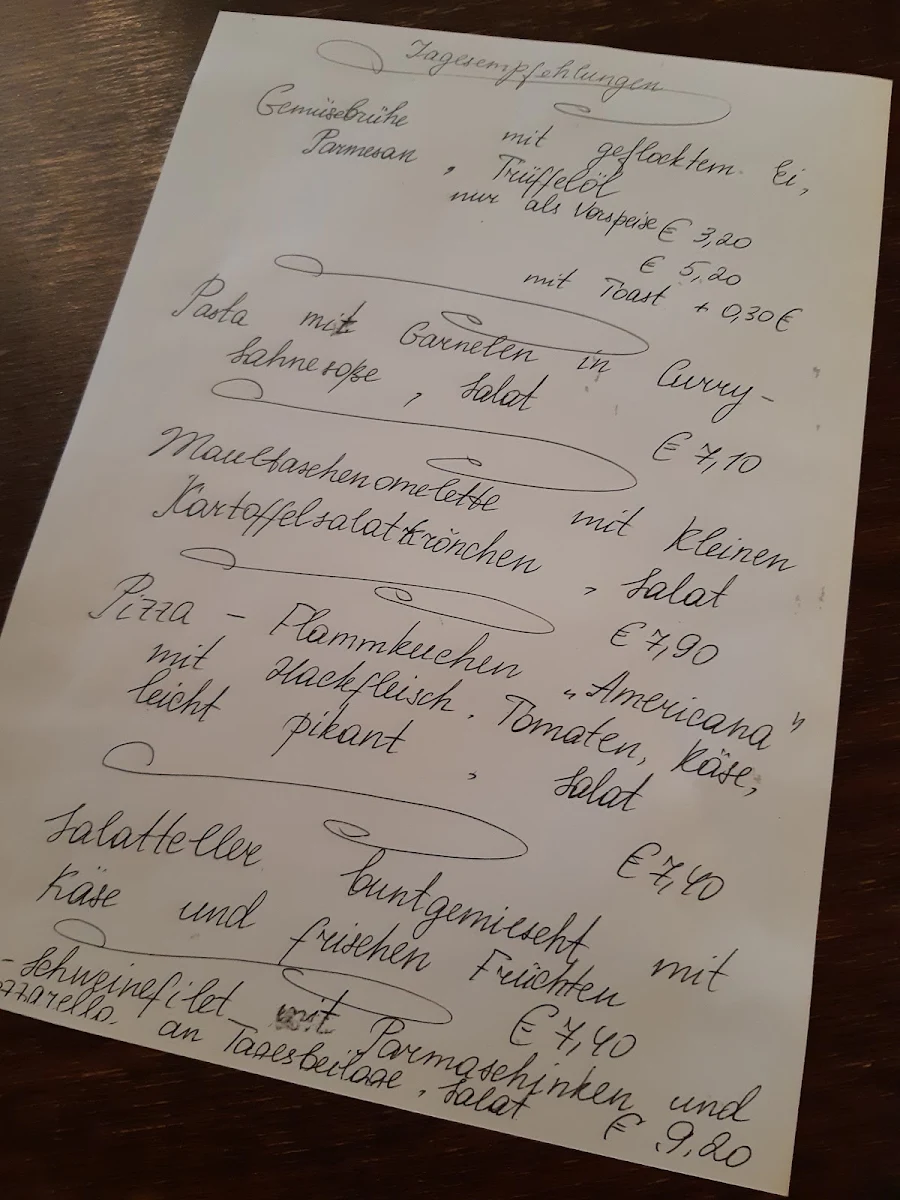 Tagesempfehlungen
Gemüsebrühe mit geflocktem Ei,
Parmesan, Trüffelöl
nur als Vorspeise € 3,20
€ 5,20
mit Toast + 0,30 €
Pasta mit Garnelen in Curry-
Sahnesoße, Salat
€ 7,10
Maultaschenomelette mit kleinen
Kartoffelsalatkrönchen, Salat
€ 7,90
Pizza - Flammkuchen "Americana"
mit Hackfleisch, Tomaten, Käse,
leicht pikant, Salat
€ 7,40
Salatteller buntgemiescht, mit
Käse und frischen Früchten
€ 7,40
- Schweinefilet mit Parmaschinken und
ozzarella an Tagesbeilage, Salat
€ 9,20